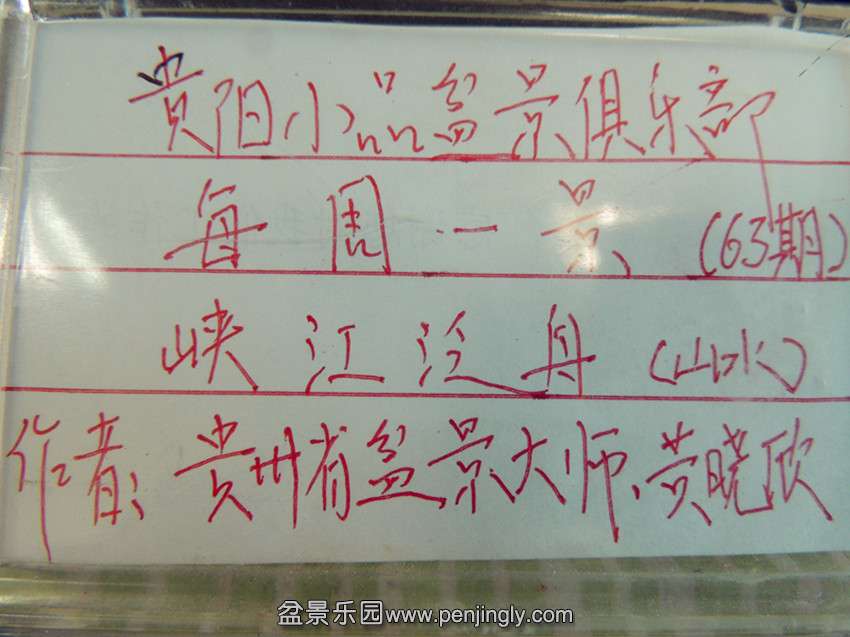 贵阳小品盆景俱乐部
每周一景(63期)
峡江泛舟(山水)
作者:贵州省盆景大师、黄晓欣
盆景乐园www.penjingly.com